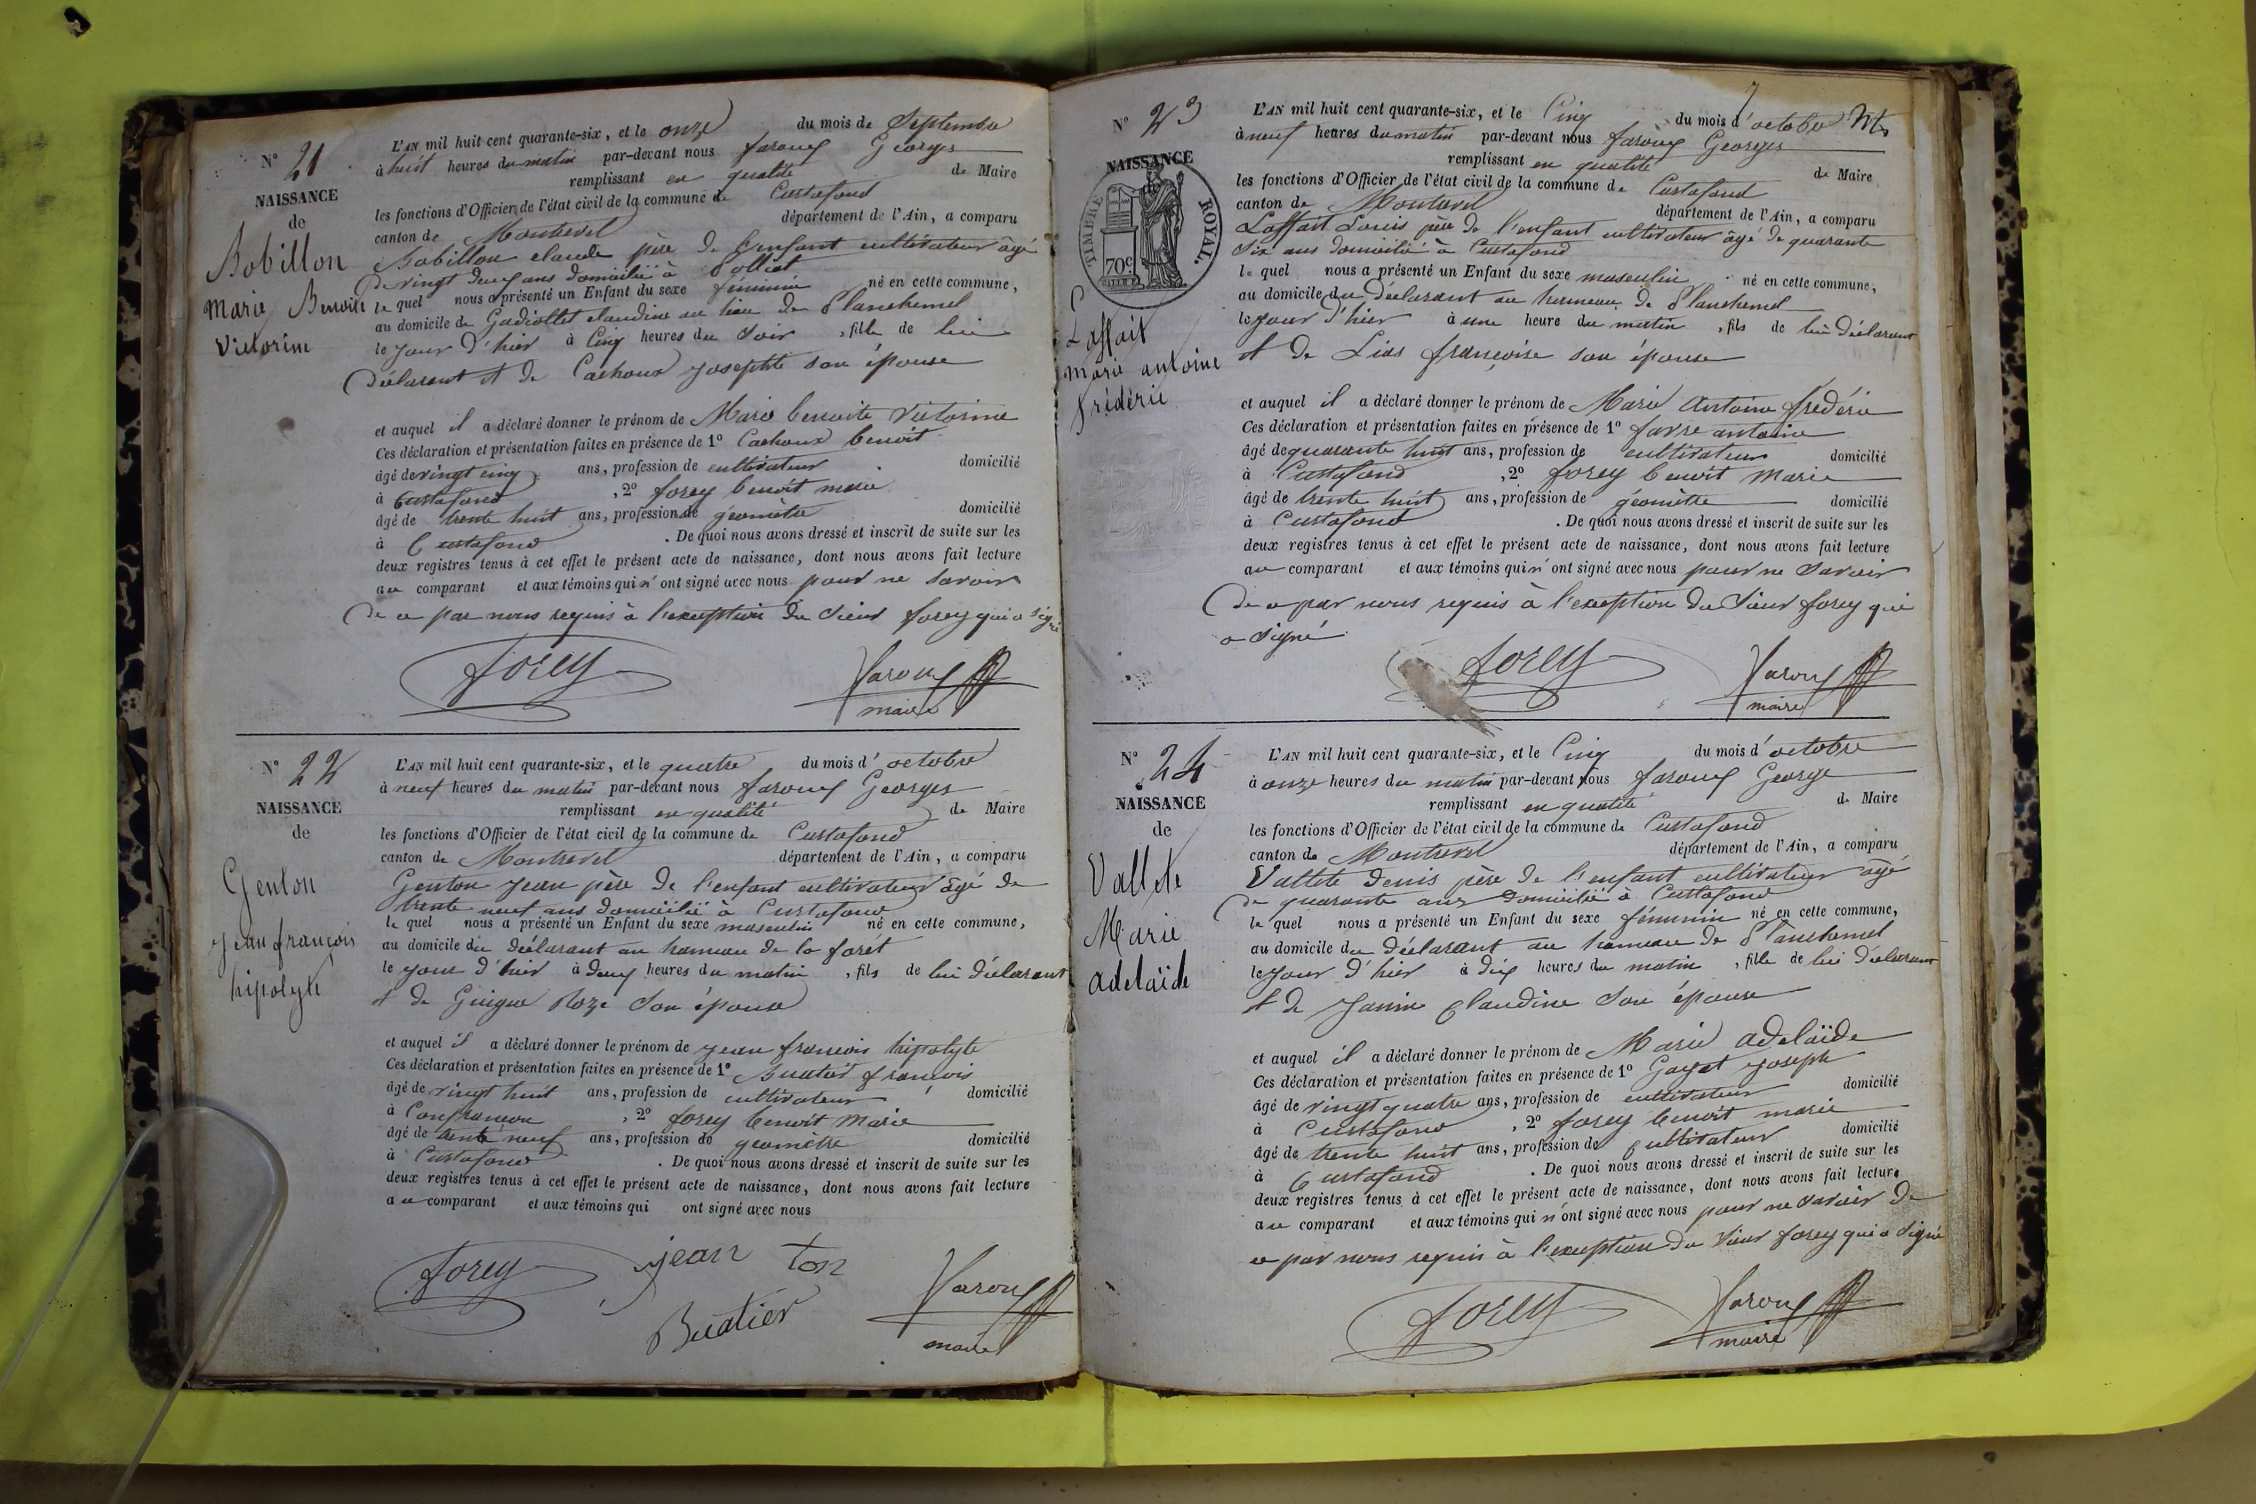 N° 21
NAISSANCE
de
Bobillon
Marie Benoite
Victorine
L'AN mil huit cent quarante-six, et le onze du mois de Septembre
à huit heures du matin par-devant nous faroux Georges
remplissant en qualité de Maire
les fonctions d'Officier de l'état civil de la commune de Curtafond
canton de Montrevel département de l'Ain, a comparu
Bobillon claude père de l'enfant cultivateur âgé
de vingt neuf ans domicilié à Polliat
le quel nous a présenté un Enfant du sexe féminin né en cette commune,
au domicile de Gadiollet claudine au lieu de Planchemel
le jour d'hier à Cinq heures du Soir , fille de lui
déclarant et de Cachoux josephte son épouse
et auquel il a déclaré donner le prénom de Marie benoite victorine
Ces déclaration et présentation faites en présence de 1° Cachoux benoit
âgé de vingt cinq ans, profession de cultivateur domicilié
à Curtafond , 2° forey benoit marie
âgé de trente huit ans, profession de géomètre domicilié
à Curtafond . De quoi nous avons dressé et inscrit de suite sur les
deux registres tenus à cet effet le présent acte de naissance, dont nous avons fait lecture
au comparant et aux témoins qui n' ont signé avec nous pour ne savoir
de ce par nous requis à l'exception du Sieur forey qui a signé
forey faroux
maire
N° 22
NAISSANCE
de
Genton
jean françois
hipolyte
L'AN mil huit cent quarante-six, et le quatre du mois d' octobre
à neuf heures du matin par-devant nous faroux Georges
remplissant en qualité de Maire
les fonctions d'Officier de l'état civil de la commune de Curtafond
canton de Montrevel département de l'Ain, a comparu
Genton jean père de l'enfant cultivateur âgé de
trente neuf ans domicilié à Curtafond
le quel nous a présenté un Enfant du sexe masculin né en cette commune,
au domicile du déclarant au hameau de la forêt
le jour d'hier à deux heures du matin , fils de lui déclarant
et de Guigue Roze son épouse
et auquel il a déclaré donner le prénom de jean françois hipolyte
Ces déclaration et présentation faites en présence de 1° Buatier françois
âgé de vingt huit ans, profession de cultivateur domicilié
à Confrançon , 2° forey benoit Marie
âgé de trente neuf ans, profession de géomètre domicilié
à Curtafond . De quoi nous avons dressé et inscrit de suite sur les
deux registres tenus à cet effet le présent acte de naissance, dont nous avons fait lecture
au comparant et aux témoins qui ont signé avec nous
forey jean ton faroux
Buatier maire
N° 23
NAISSANCE
TIMBRE ROYAL.
70c
Laffait
marie antoine
frédéric
L'AN mil huit cent quarante-six, et le Cinq du mois d'octobre
à neuf heures du matin par-devant nous faroux Georges
remplissant en qualité de Maire
les fonctions d'Officier de l'état civil de la commune de Curtafond
canton de Montrevel département de l'Ain, a comparu
Laffait Louis père de l'enfant cultivateur âgé de quarante
Six ans domicilié à Curtafond
le quel nous a présenté un Enfant du sexe masculin né en cette commune,
au domicile du déclarant au hameau de Planchemel
le jour d'hier à une heure du matin , fils de lui déclarant
et de Lias françoise son épouse
et auquel il a déclaré donner le prénom de Marie Antoine frédéric
Ces déclaration et présentation faites en présence de 1° favre antoine
âgé de quarante huit ans, profession de cultivateur domicilié
à Curtafond , 2° forey benoit Marie
âgé de trente huit ans, profession de géomètre domicilié
à Curtafond . De quoi nous avons dressé et inscrit de suite sur les
deux registres tenus à cet effet le présent acte de naissance, dont nous avons fait lecture
au comparant et aux témoins qui n' ont signé avec nous pour ne savoir
de ce par nous requis à l'exception du Sieur forey qui
a signé
forey faroux
maire
N° 24
NAISSANCE
de
Vallete
Marie
adelaïde
L'AN mil huit cent quarante-six, et le Cinq du mois d' octobre
à onze heures du matin par-devant nous faroux George
remplissant en qualité de Maire
les fonctions d'Officier de l'état civil de la commune de Curtafond
canton de Montrevel département de l'Ain, a comparu
Vallete denis père de l'enfant cultivateur âgé
de quarante ans domicilié à Curtafond
le quel nous a présenté un Enfant du sexe féminin né en cette commune,
au domicile du déclarant au hameau de Planchemel
le jour d'hier à dix heures du matin , fille de lui déclarant
et de Janin Claudine son épouse
et auquel il a déclaré donner le prénom de Marie adelaïde
Ces déclaration et présentation faites en présence de 1° Gayat joseph
âgé de vingt quatre ans, profession de cultivateur domicilié
à Curtafond , 2° forey benoit marie
âgé de trente huit ans, profession de Cultivateur domicilié
à Curtafond . De quoi nous avons dressé et inscrit de suite sur les
deux registres tenus à cet effet le présent acte de naissance, dont nous avons fait lecture
au comparant et aux témoins qui n' ont signé avec nous pour ne savoir de
ce par nous requis à l'exception du Sieur forey qui a signé
forey faroux
maire